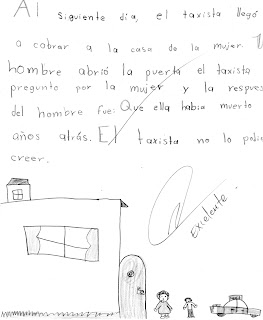 Al siguiente dia, el taxista llegó
a cobrar a la casa de la mujer.
hombre abrió la puerta el taxista
pregunto por la mujer y la respues
del hombre fue: Que ella habia muerto
años atrás. El taxista no lo podia
creer.
Excelente.